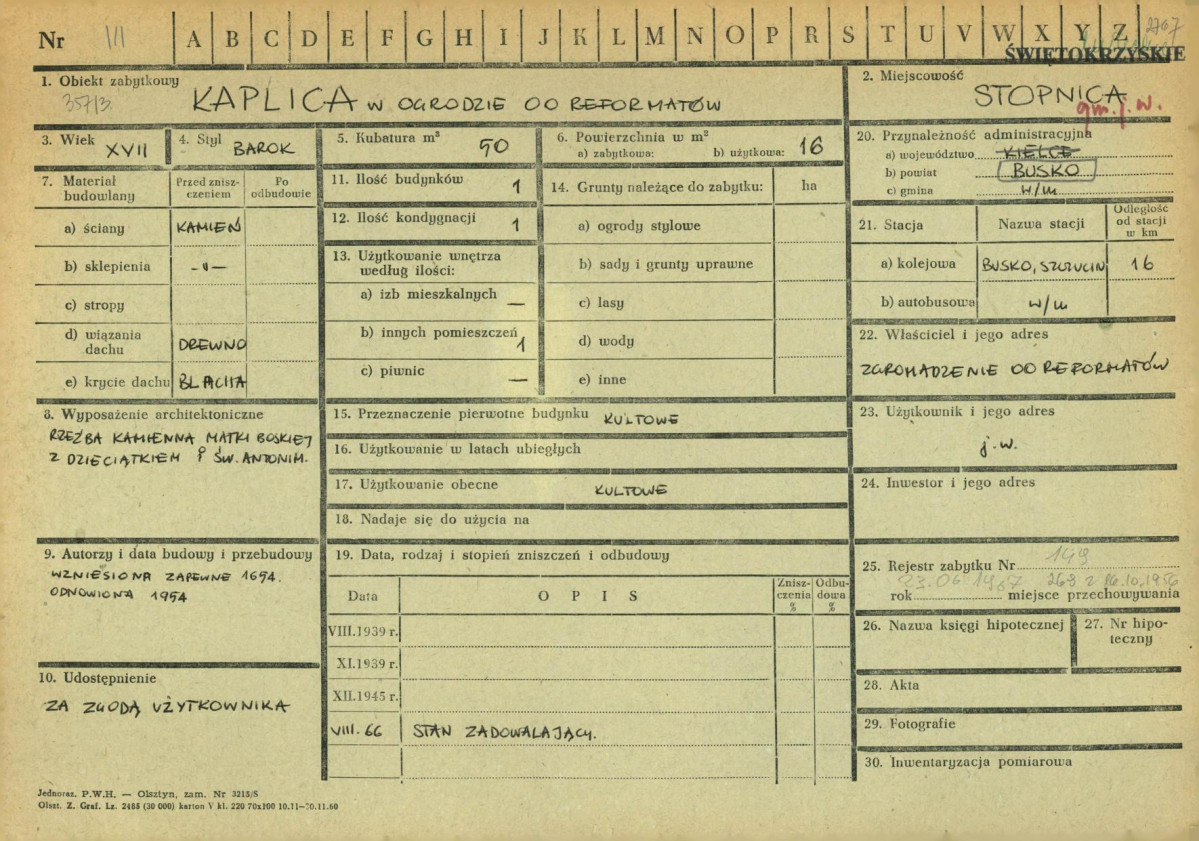 Nr III A B C D E F G H I J K L M N O P R S T U V W X Y Z 2767
ŚWIĘTOKRZYSKIE
1. Obiekt zabytkowy
357/3
KAPLICA W OGRODZIE OO REFORMATÓW
2. Miejscowość
STOPNICA
gm. j. w.
3. Wiek XVII
4. Styl BAROK
5. Kubatura m³ 90
6. Powierzchnia w m²
a) zabytkowa: b) użytkowa: 16
20. Przynależność administracyjna
a) województwo KIELCE
b) powiat BUSKO
c) gmina w/m
7. Materiał budowlany
Przed zniszczeniem
Po odbudowie
a) ściany KAMIEŃ
b) sklepienia -„-
c) stropy
d) wiązania dachu DREWNO
e) krycie dachu BLACHA
11. Ilość budynków 1
12. Ilość kondygnacji 1
13. Użytkowanie wnętrza według ilości:
a) izb mieszkalnych —
b) innych pomieszczeń 1
c) piwnic —
14. Grunty należące do zabytku: ha
a) ogrody stylowe
b) sady i grunty uprawne
c) lasy
d) wody
e) inne
21. Stacja
Nazwa stacji
Odległość od stacji w km
a) kolejowa BUSKO, SZCZUCIN 16
b) autobusowa w/m
22. Właściciel i jego adres
ZGROMADZENIE OO REFORMATÓW
8. Wyposażenie architektoniczne
RZEŹBA KAMIENNA MATKI BOSKIEJ
Z DZIECIĄTKIEM I ŚW. ANTONIM.
15. Przeznaczenie pierwotne budynku KULTOWE
16. Użytkowanie w latach ubiegłych
17. Użytkowanie obecne KULTOWE
18. Nadaje się do użycia na
23. Użytkownik i jego adres
j.w.
24. Inwestor i jego adres
9. Autorzy i data budowy i przebudowy
WZNIESIONA ZAPEWNE 1694.
ODNOWIONA 1954
19. Data, rodzaj i stopień zniszczeń i odbudowy
Data O P I S Zniszczenia % Odbudowa %
VIII.1939 r.
XI.1939 r.
XII.1945 r.
VIII. 66 STAN ZADOWALAJĄCY.
25. Rejestr zabytku Nr 149
23.06.1967 269 z 16.10.1956
rok miejsce przechowywania
26. Nazwa księgi hipotecznej
27. Nr hipoteczny
10. Udostępnienie
ZA ZGODĄ UŻYTKOWNIKA
28. Akta
29. Fotografie
30. Inwentaryzacja pomiarowa
Jednoraz. P.W.H. — Olsztyn, zam. Nr 3215/S
Olszt. Z. Graf. Lz. 2485 (30 000) karton V kl. 220 70x100 10.11—30.11.60